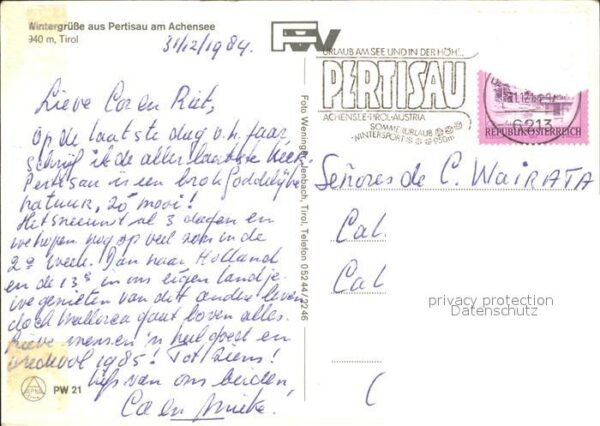 Wintergrüße aus Pertisau am Achensee
940 m, Tirol
31/12/1984.
Lieve Cor en Riet,
Op de laatste dag v.h. jaar,
schrijf ik de allerlaatste keer.
Pertisau is een brok Goddelijke
natuur, zo mooi!
Het sneeuwt al 3 dagen en
we hopen nog op veel zon in de
2e week. Dan naar Holland
en de 13e in ons eigen landje.
We genieten van dit andere leven
doch Mallorca gaat boven alles.
Lieve mensen 'n heel goed en
vredevol 1985! Tot Ziens!
Liefs van ons beiden,
Co en Mieke.
PW 21
Foto Weninger, Jenbach, Tirol, Telefon 05244/2246
URLAUB AM SEE UND IN DER HÖH'...
PERTISAU
ACHENSEE-TIROL-AUSTRIA
SOMMERURLAUB
WINTERSPORT IS 950m
6213
REPUBLIK ÖSTERREICH
Señores de C. WAIRATA
Cal.
Cal
C
privacy protection
Datenschutz